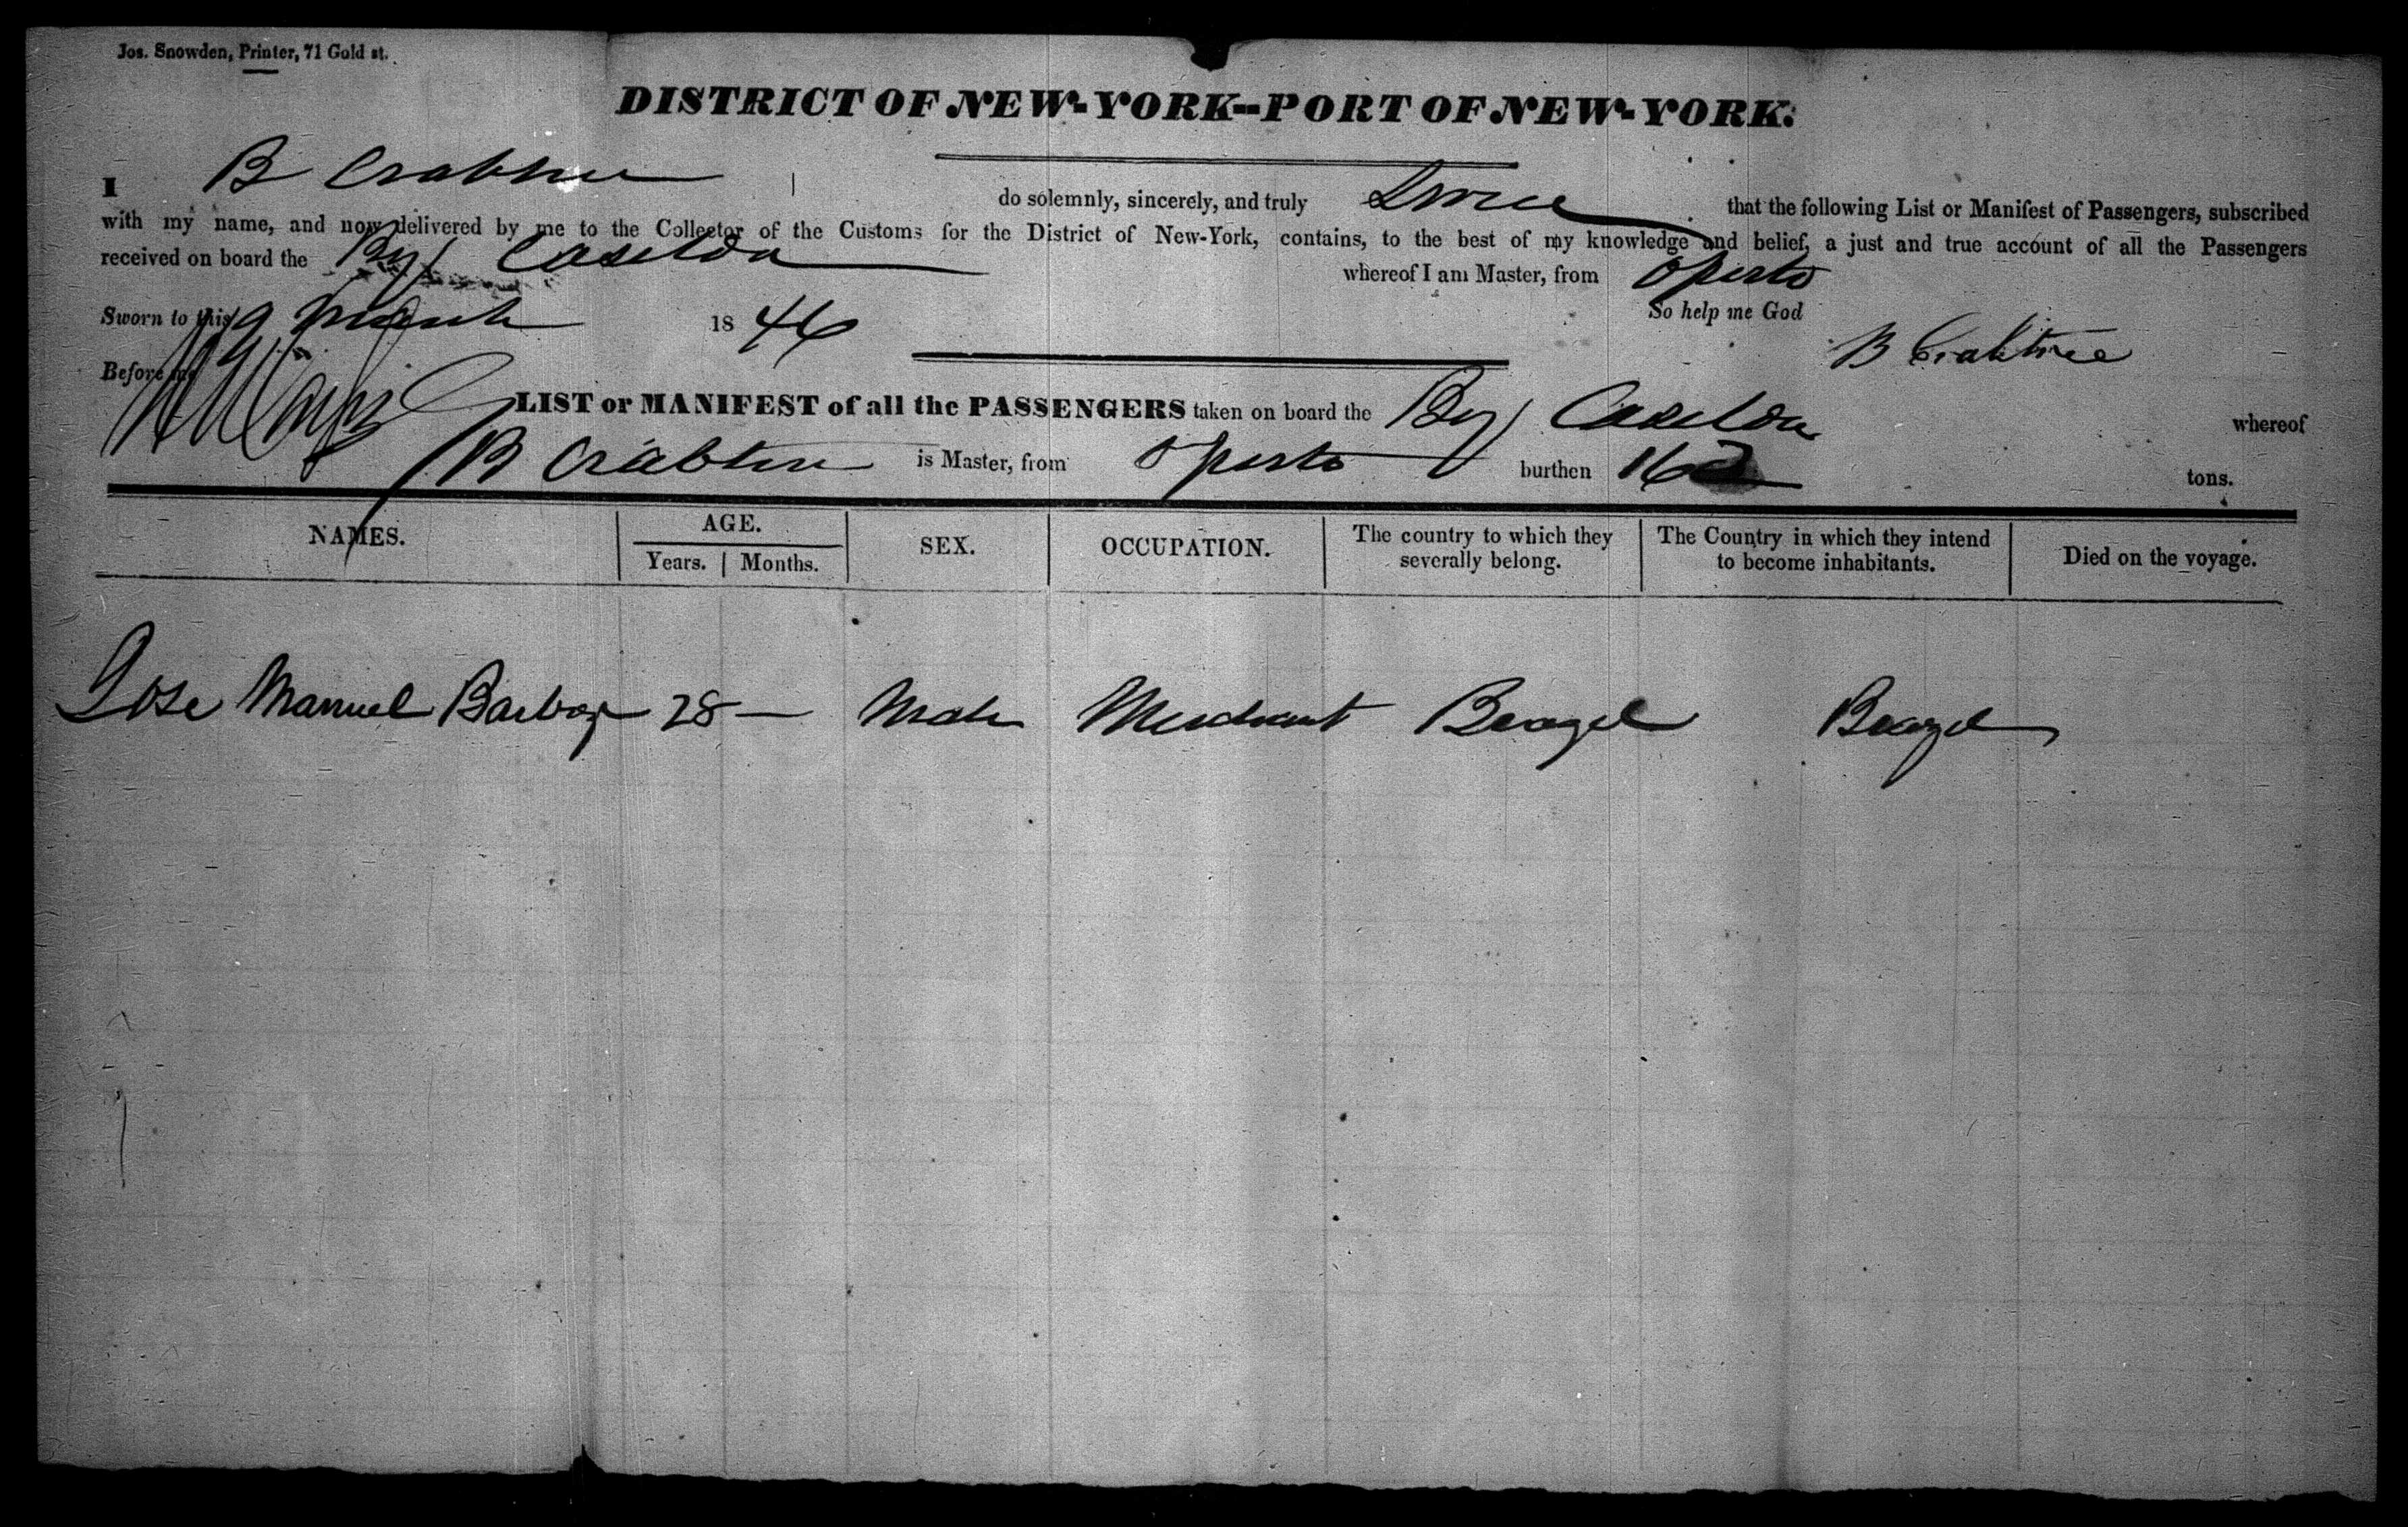 Jos. Snowden, Printer, 71 Gold st.
DISTRICT OF NEW-YORK--PORT OF NEW-YORK.
I B Crabtree do solemnly, sincerely, and truly Swear that the following List or Manifest of Passengers, subscribed
with my name, and now delivered by me to the Collector of the Customs for the District of New-York, contains, to the best of my knowledge and belief, a just and true account of all the Passengers
received on board the Brig Casilda whereof I am Master, from Oporto
Sworn to this 19 March 1846 So help me God
Before me B Crabtree
LIST or MANIFEST of all the PASSENGERS taken on board the Brig Casilda whereof
B Crabtree is Master, from Oporto burthen 162 tons.
NAMES. AGE. SEX. OCCUPATION. The country to which they severally belong. The Country in which they intend to become inhabitants. Died on the voyage.
Years. Months.
Jose Manuel Barboza 28 — Male Merchant Brazil Brazil